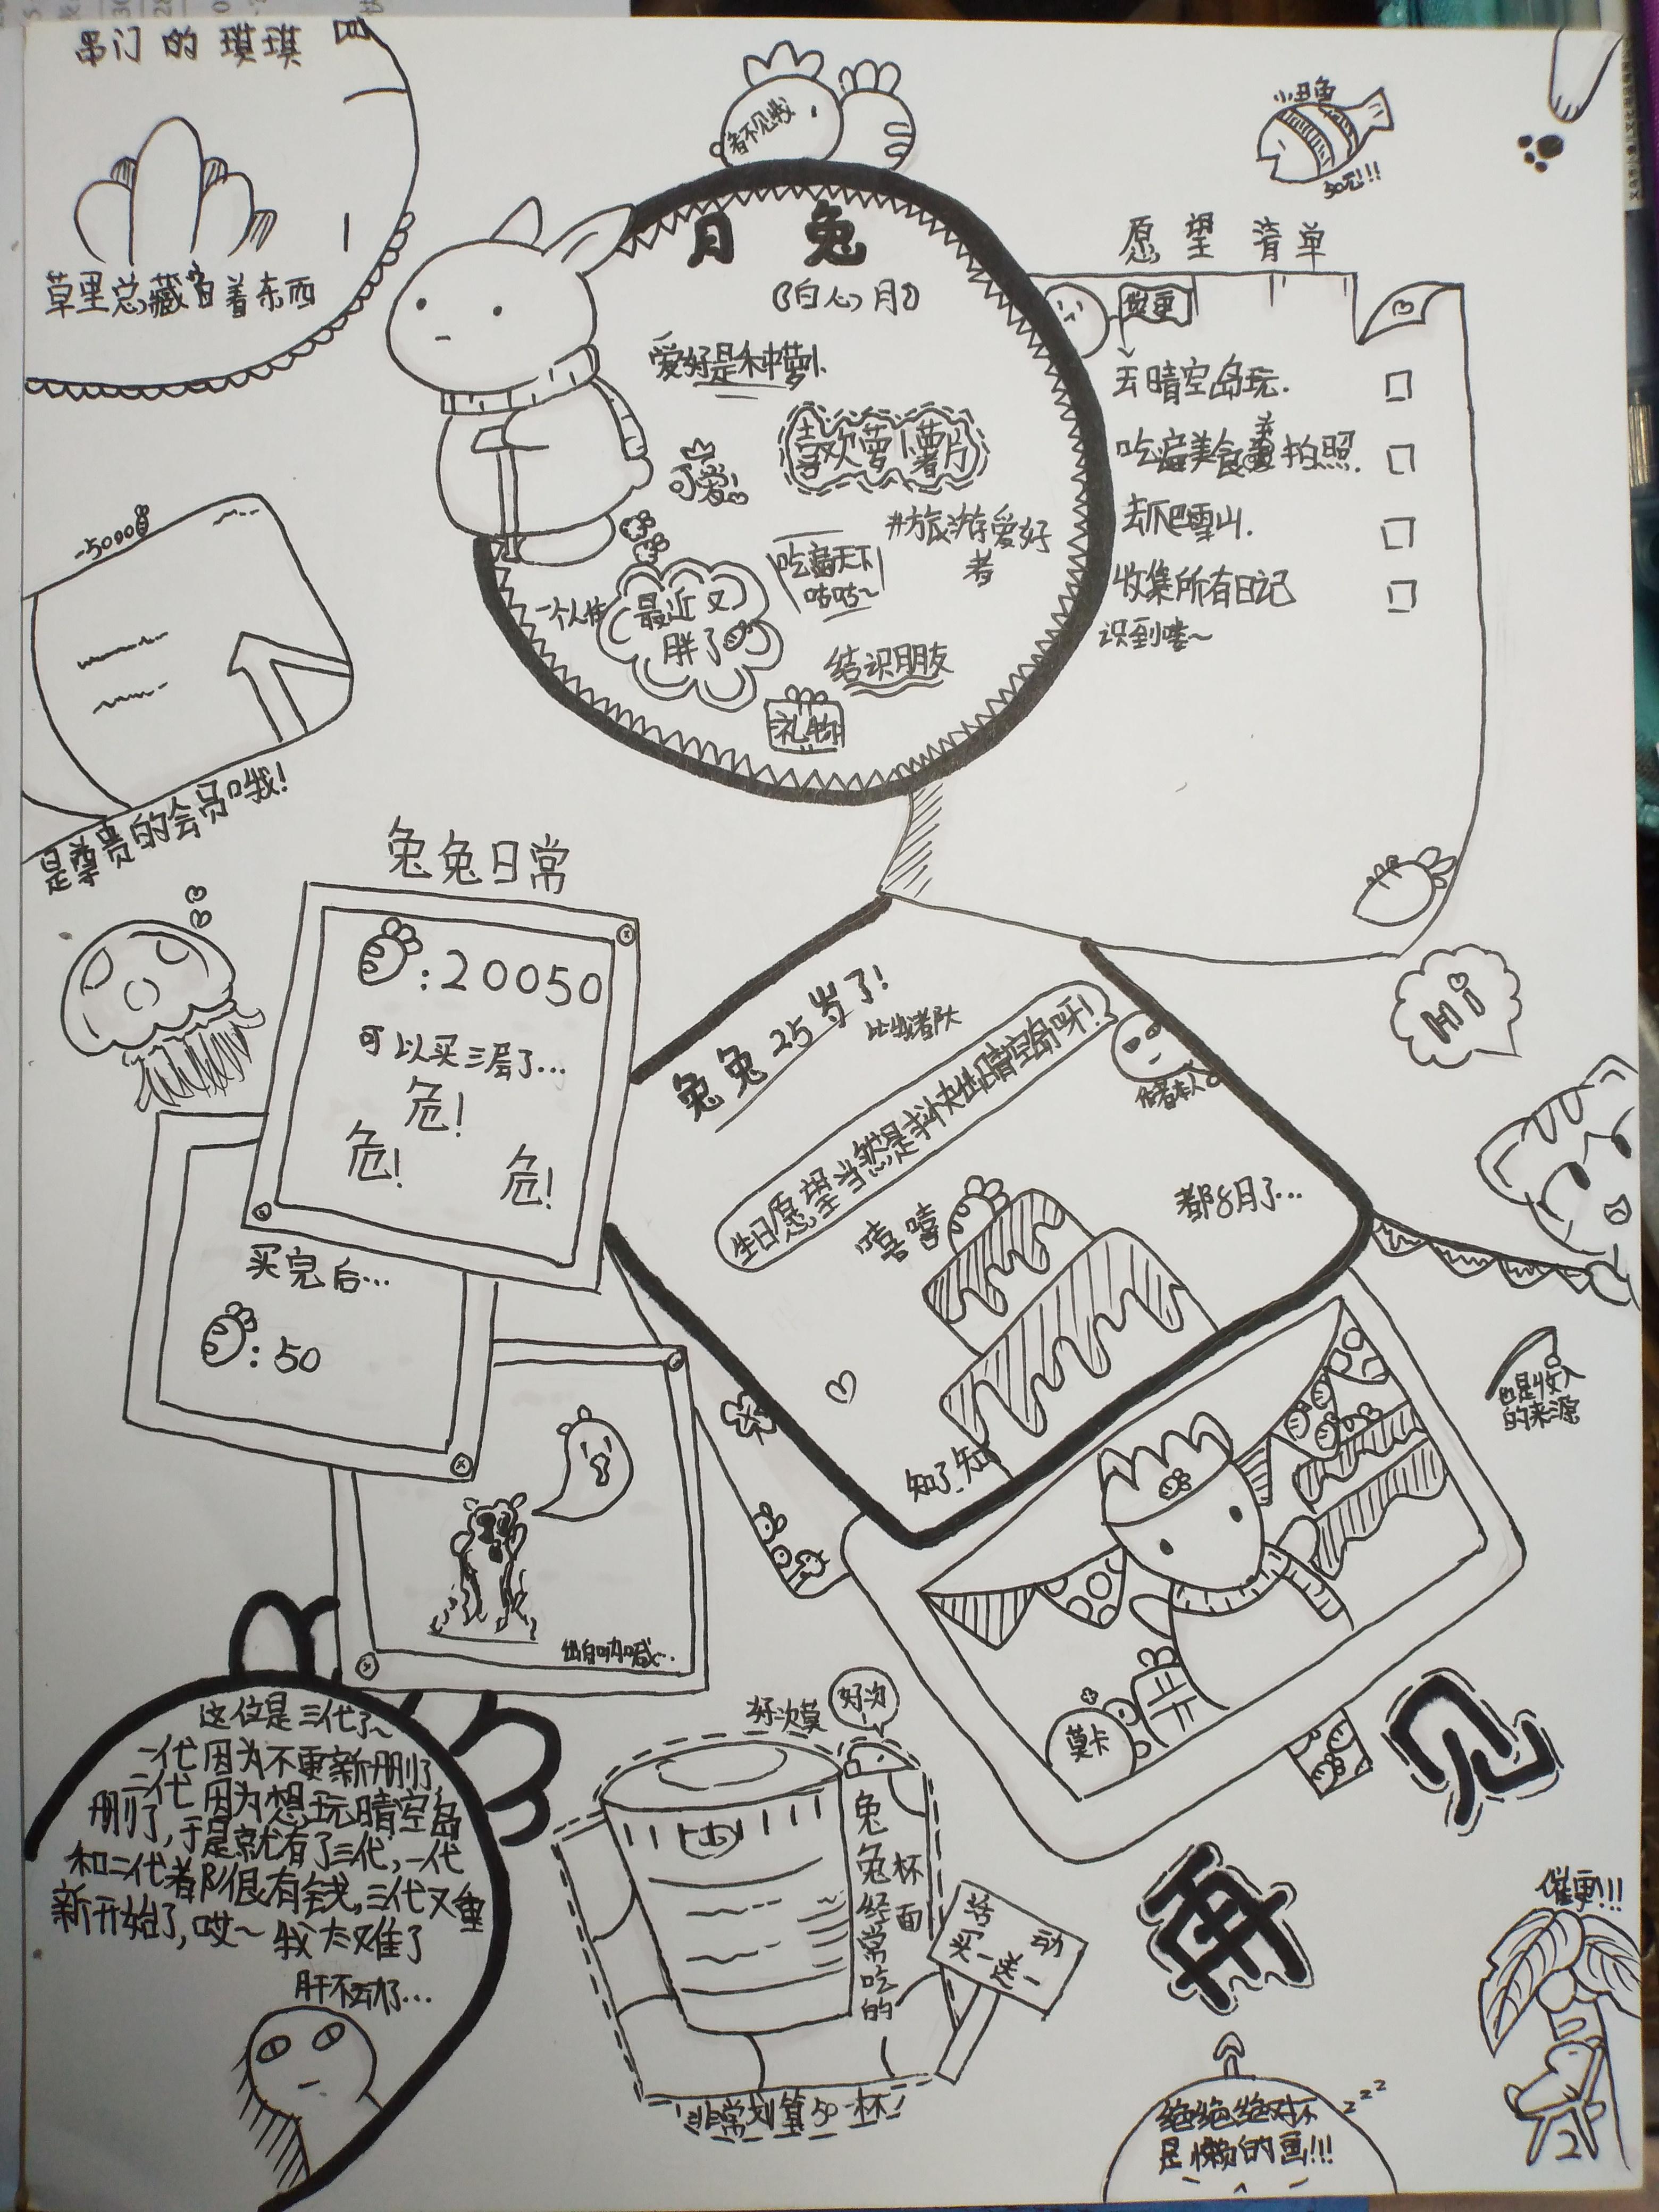 串门的琪琪
草里总藏着东西
看不见我
小丑鱼
50元!!!
月兔
(白心月)
爱好是种萝卜
喜欢萝卜薯片
可爱
#旅游爱好
者
吃遍天下
咕咕~
一个人住
最近又
胖了
结识朋友
礼物
愿望清单
催更
去晴空岛玩.
吃遍美食并拍照.
去爬雪山.
收集所有日记
识到喽~
-5000
是尊贵的会员哦!
兔兔日常
:20050
可以买三层了...
危!
危!
危!
买完后...
:50
出自呐喊...
兔兔25岁了!
比我都大
生日愿望当然是求快出晴空岛呀!
作者本人
嘻嘻
都8月了...
知了,知
Hi
也是收入
的来源
莫卡
这位是三代了~
一代因为不更新删了
二代因为想玩晴空岛
删了,于是就有了三代,一代
和二代都很有钱,三代又重
新开始了,哎~我太难了
肝不动了...
好次莫
好次
兔兔经常吃的
杯面
活动
买一送一
非常划算50一杯!
再见
催更!!!
绝绝绝对不
是懒的画!!!
zzz